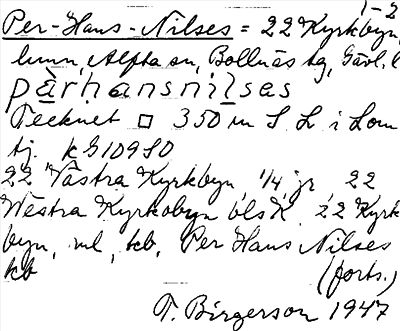 1-2
Per-Hans-Nilses = 22 Kyrkbyn,
lunn, Alfta sn, Bollnäs tg, Gävl. l
pàrhansnilses
Tecknet □ 350 m S L i Lom
tj. kG10980
22 Västra Kyrkbyn, 1/4, jr, 22
Westra Kyrkobyn blsK. 22 Kyrk
byn, ml, kb, Per Hans Nilses
kb (forts.)
T. Birgerson 1947